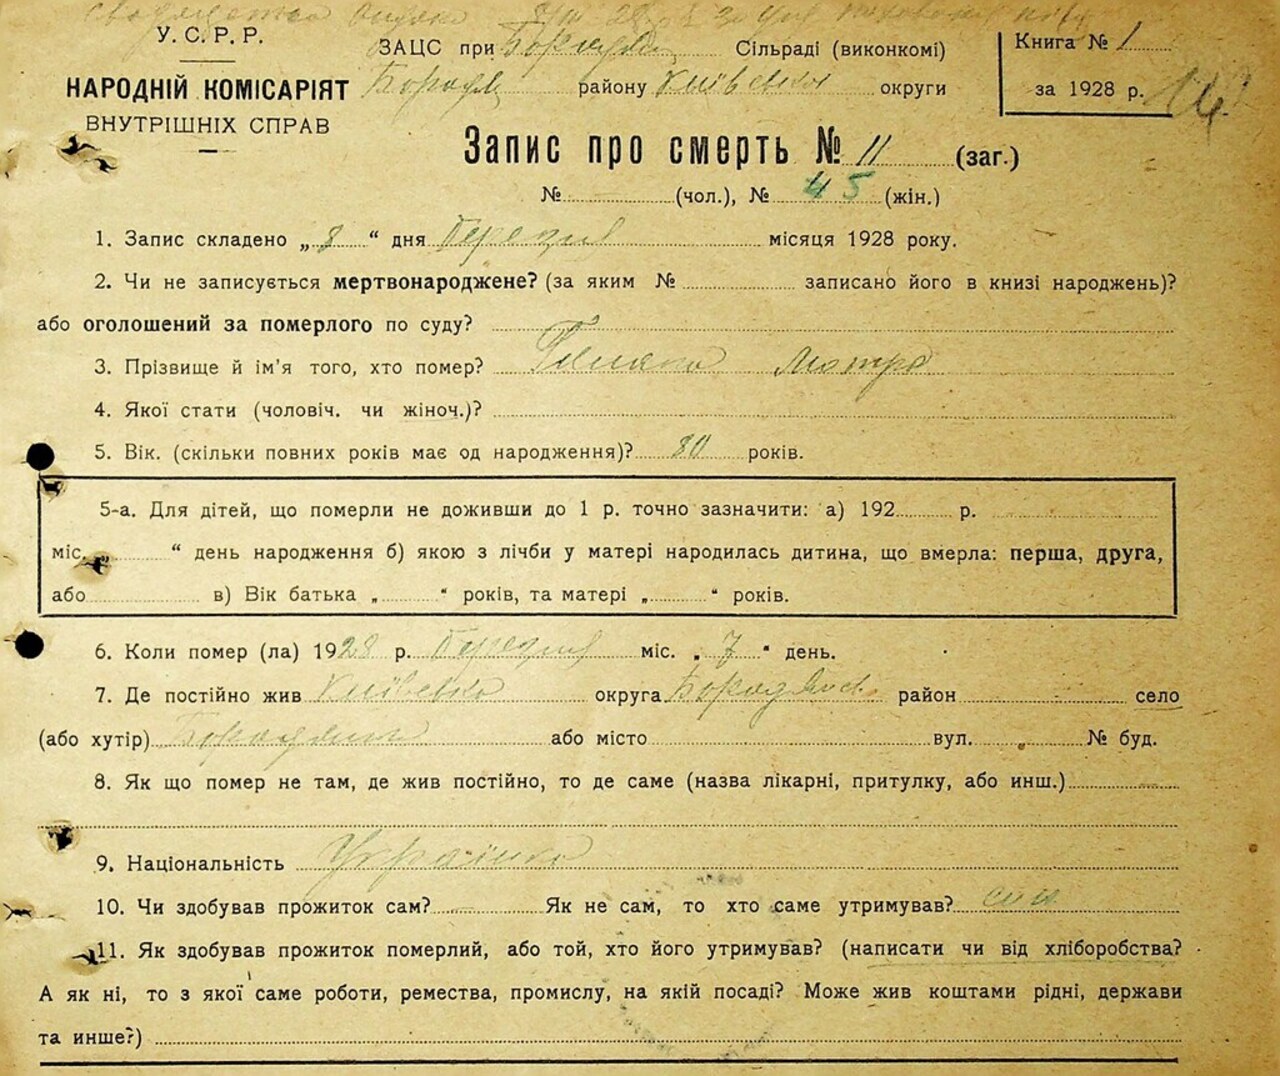 У. С. Р. Р.
НАРОДНІЙ КОМІСАРІЯТ
ВНУТРІШНІХ СПРАВ
ЗАЦС при Сільраді (виконкомі)
району Київської округи
Книга № 1
за 1928 р.
Запис про смерть № 11 (заг.)
№ (чол.), № 45 (жін.)
1. Запис складено „ 8 “ дня Березня місяця 1928 року.
2. Чи не записується мертвонароджене? (за яким № записано його в книзі народжень)?
або оголошений за померлого по суду?
3. Прізвище й ім'я того, хто помер? Мотря
4. Якої стати (чоловіч. чи жіноч.)?
5. Вік. (скільки повних років має од народження)? 80 років.
5-а. Для дітей, що померли не доживши до 1 р. точно зазначити: а) 192 р.
міс. “ день народження б) якою з лічби у матері народилась дитина, що вмерла: перша, друга,
або в) Вік батька „ “ років, та матері „ “ років.
6. Коли помер (ла) 1928 р. Березня міс. „ 7 “ день.
7. Де постійно жив Київсько округа район село
(або хутір) або місто вул. № буд.
8. Як що помер не там, де жив постійно, то де саме (назва лікарні, притулку, або инш.)
9. Національність Українка
10. Чи здобував прожиток сам? Як не сам, то хто саме утримував? син
11. Як здобував прожиток померлий, або той, хто його утримував? (написати чи від хліборобства?
А як ні, то з якої саме роботи, ремества, промислу, на якій посаді? Може жив коштами рідні, держави
та инше?)